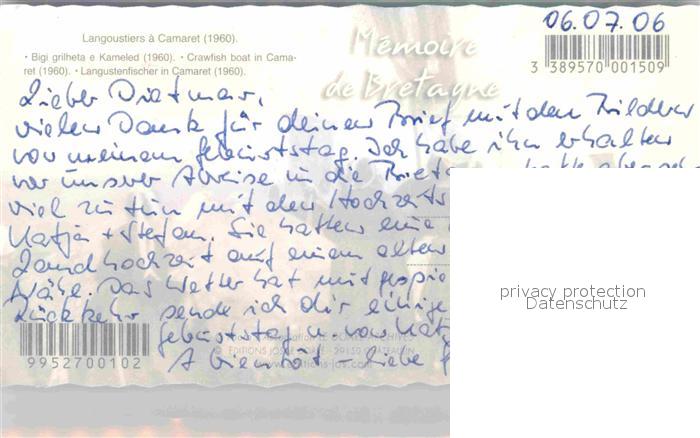 Langoustiers à Camaret (1960).
• Bigi grilheta e Kameled (1960). • Crawfish boat in Cama-
ret (1960). • Langustenfischer in Camaret (1960).
Mémoire
de Bretagne
06.07.06
3 389570 001509
Lieber Dietmar,
vielen Dank für deinen Brief mit den Bildern
von meinem Geburtstag. Ich habe ihn erhalten
vor unserer Abreise in die
viel zu tun mit den Hochzeits
Katja + Stefan. Sie hatten eine
Landhochzeit auf einem alten
Nähe. Das Wetter hat mitgespie
Rückkehr sende ich dir einige
Geburtstag u. von
liebe
9952700102
privacy protection
Datenschutz